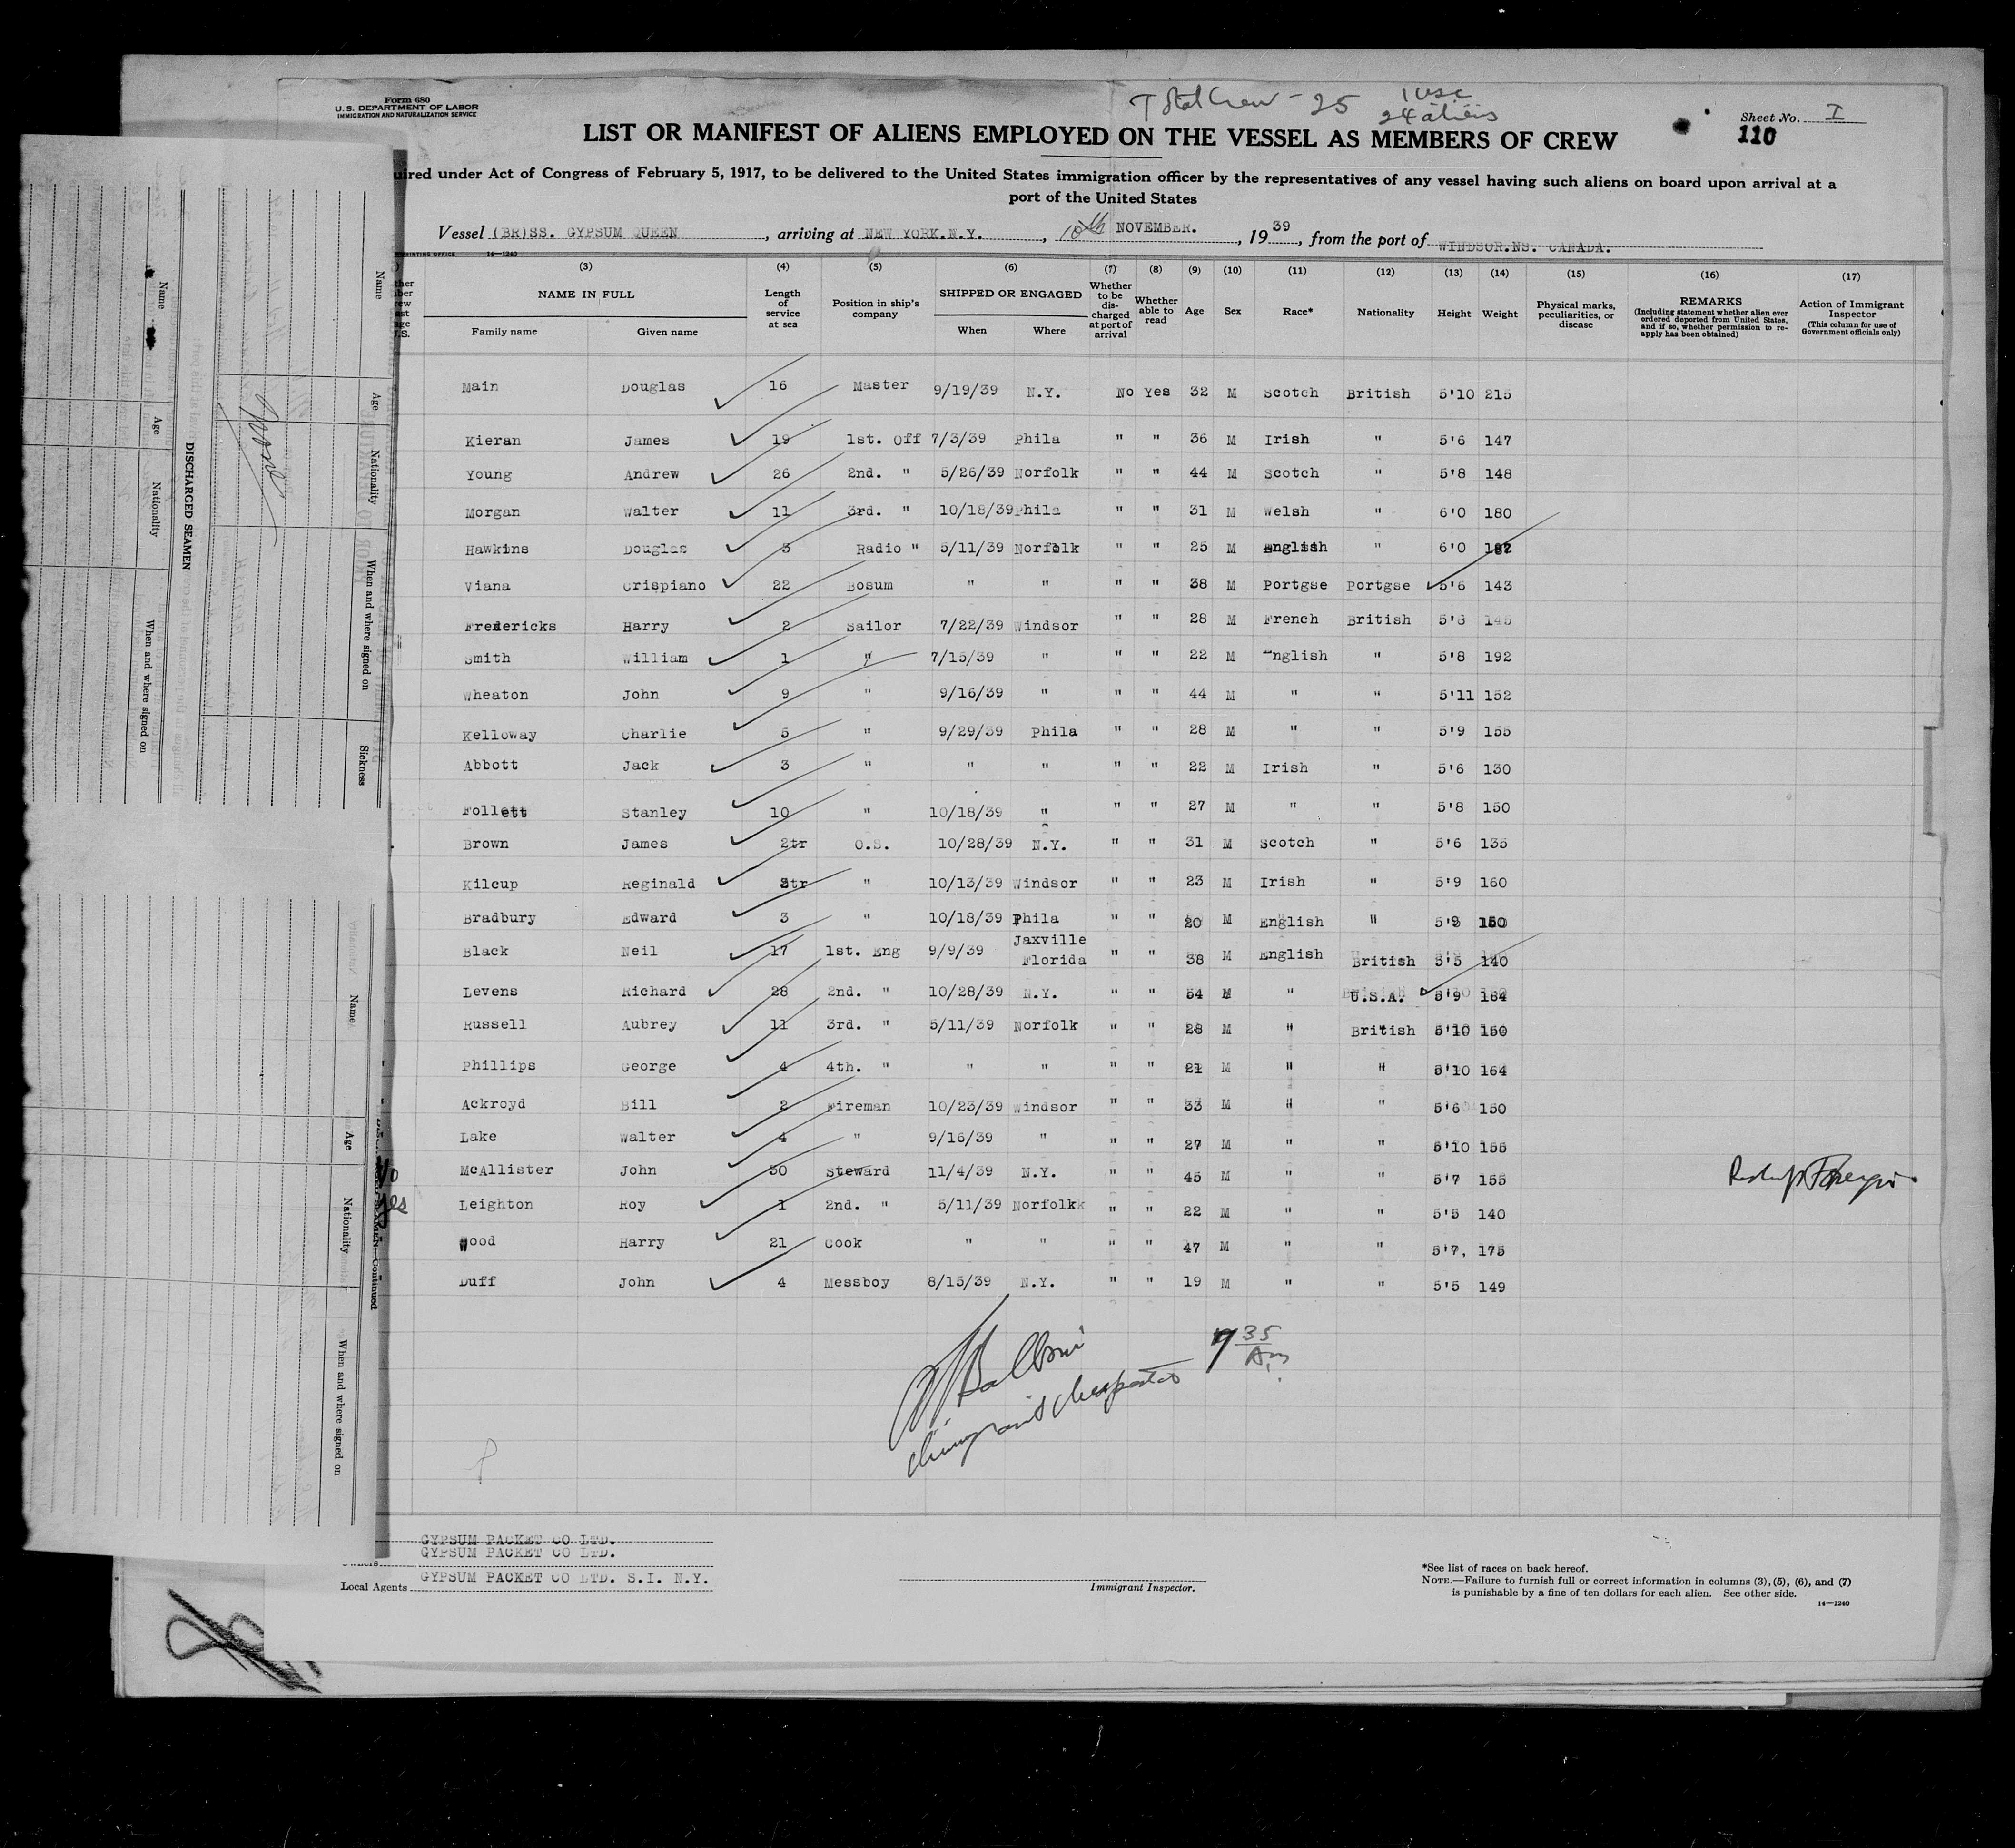 Form 680
U. S. DEPARTMENT OF LABOR
IMMIGRATION AND NATURALIZATION SERVICE
Total Crew - 25 1 USC
24 aliens
Sheet No. I
110
LIST OR MANIFEST OF ALIENS EMPLOYED ON THE VESSEL AS MEMBERS OF CREW
uired under Act of Congress of February 5, 1917, to be delivered to the United States immigration officer by the representatives of any vessel having such aliens on board upon arrival at a
port of the United States
Vessel (BR)SS. GYPSUM QUEEN, arriving at NEW YORK.N.Y., 10th NOVEMBER., 1939, from the port of WINDSOR.NS. CANADA.
PRINTING OFFICE 14—1240
(3) (4) (5) (6) (7) (8) (9) (10) (11) (12) (13) (14) (15) (16) (17)
NAME IN FULL
Family name Given name
Length of service at sea
Position in ship's company
SHIPPED OR ENGAGED
When Where
Whether to be discharged at port of arrival
Whether able to read
Age Sex Race* Nationality Height Weight
Physical marks, peculiarities, or disease
REMARKS
(Including statement whether alien ever ordered deported from United States, and if so, whether permission to reapply has been obtained)
Action of Immigrant Inspector
(This column for use of Government officials only)
Main Douglas 16 Master 9/19/39 N.Y. No Yes 32 M Scotch British 5'10 215
Kieran James 19 1st. Off 7/3/39 Phila " " 36 M Irish " 5'6 147
Young Andrew 26 2nd. " 5/26/39 Norfolk " " 44 M Scotch " 5'8 148
Morgan Walter 11 3rd. " 10/18/39 Phila " " 31 M Welsh " 6'0 180
Hawkins Douglas 3 Radio " 5/11/39 Norfolk " " 25 M English " 6'0
Viana Crispiano 22 Bosum " " " " 38 M Portgse Portgse 5'6 143
Fredericks Harry 2 Sailor 7/22/39 Windsor " " 28 M French British 145
Smith William 1 " 7/15/39 " " " 22 M English " 5'8 192
Wheaton John 9 " 9/16/39 " " " 44 M " " 5'11 152
Kelloway Charlie 5 " 9/29/39 Phila " " 28 M " " 5'9 155
Abbott Jack 3 " " " " " 22 M Irish " 5'6 130
Follett Stanley 10 " 10/18/39 " " " 27 M " " 5'8 150
Brown James 2tr O.S. 10/28/39 N.Y. " " 31 M Scotch " 5'6 135
Kilcup Reginald tr " 10/13/39 Windsor " " 23 M Irish " 5'9 160
Bradbury Edward 3 " 10/18/39 Phila " " 20 M English " 5'9
Black Neil 17 1st. Eng 9/9/39 Jaxville Florida " " 38 M English British 5'5 140
Levens Richard 28 2nd. " 10/28/39 N.Y. " " 54 M " U.S.A. 5'9 164
Russell Aubrey 11 3rd. " 5/11/39 Norfolk " " 28 M " British 5'10 150
Phillips George 4 4th. " " " " " 21 M " " 5'10 164
Ackroyd Bill 2 Fireman 10/23/39 Windsor " " 33 M " " 5'6 150
Lake Walter 4 " 9/16/39 " " " 27 M " " 5'10 155
No McAllister John 30 Steward 11/4/39 N.Y. " " 45 M " " 5'7 155
Yes Leighton Roy 1 2nd. " 5/11/39 Norfolkk " " 22 M " " 5'5 140
Wood Harry 21 Cook " " " " 47 M " " 5'7, 175
Duff John 4 Messboy 8/15/39 N.Y. " " 19 M " " 5'5 149
7 35
Am
GYPSUM PACKET CO LTD.
Owners GYPSUM PACKET CO LTD.
Local Agents GYPSUM PACKET CO LTD. S.I. N.Y.
Immigrant Inspector.
*See list of races on back hereof.
NOTE.—Failure to furnish full or correct information in columns (3), (5), (6), and (7)
is punishable by a fine of ten dollars for each alien. See other side.
14—1240
DISCHARGED SEAMEN
Name Age Nationality When and where signed on
Name Age Nationality When and where signed on Sickness
Name Age Nationality When and where signed on
SEAMEN—Continued